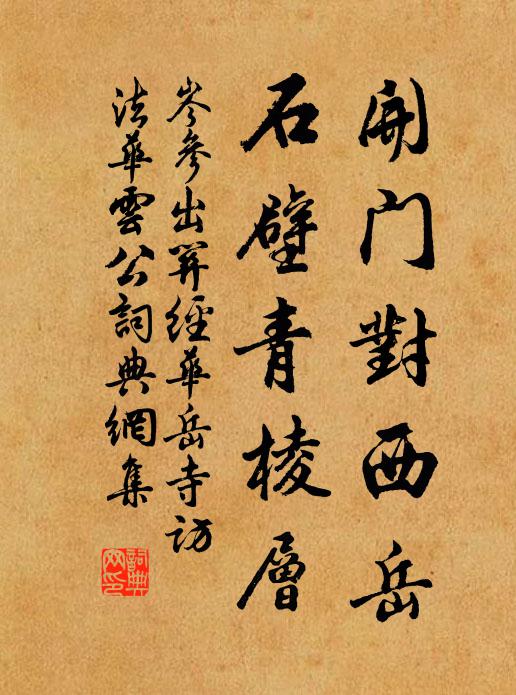 開門對西岳
石壁青棱層
岑參出關經華岳寺訪
法華雲公詞典網集
詞典网印